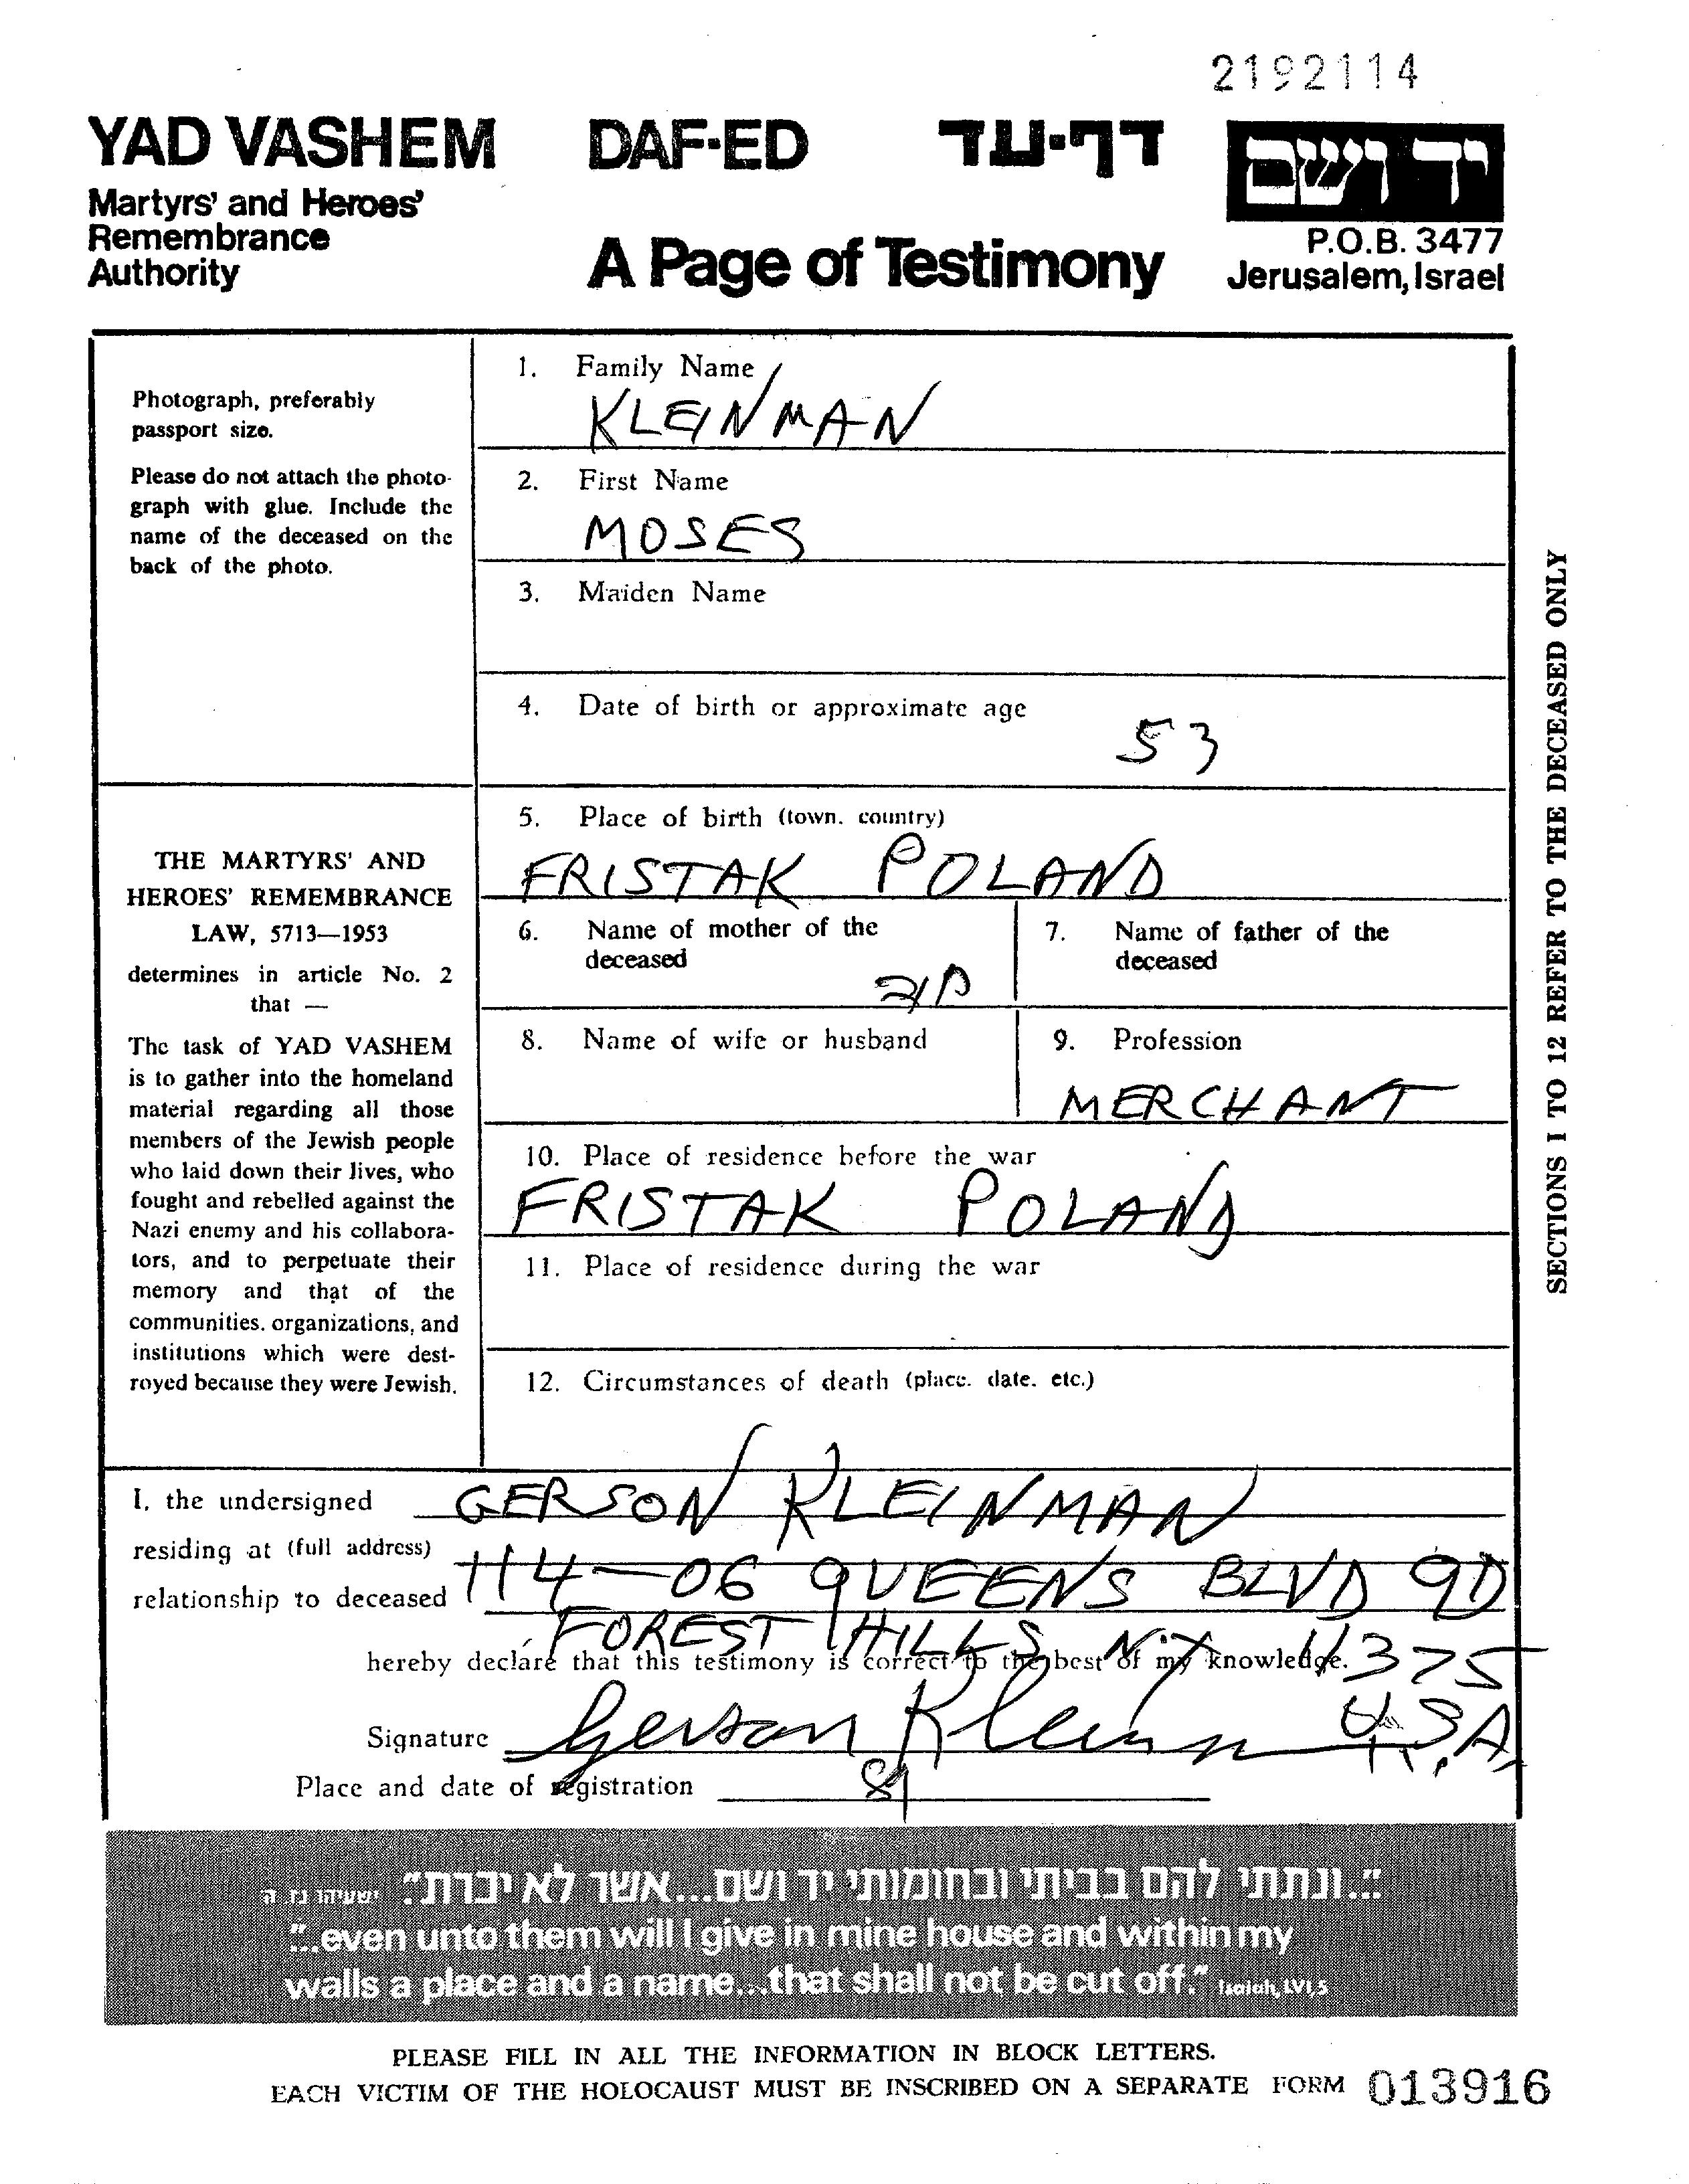 2192114
YAD VASHEM DAF-ED דף-עד יד ושם
Martyrs' and Heroes'
Remembrance
Authority
A Page of Testimony
P.O.B. 3477
Jerusalem, Israel
Photograph, preferably
passport size.
Please do not attach the photo-
graph with glue. Include the
name of the deceased on the
back of the photo.
THE MARTYRS' AND
HEROES' REMEMBRANCE
LAW, 5713—1953
determines in article No. 2
that —
The task of YAD VASHEM
is to gather into the homeland
material regarding all those
members of the Jewish people
who laid down their lives, who
fought and rebelled against the
Nazi enemy and his collabora-
tors, and to perpetuate their
memory and that of the
communities. organizations, and
institutions which were dest-
royed because they were Jewish.
1. Family Name
KLEINMAN
2. First Name
MOSES
3. Maiden Name
4. Date of birth or approximate age
53
5. Place of birth (town. country)
FRISTAK POLAND
6. Name of mother of the
deceased
7. Name of father of the
deceased
8. Name of wife or husband
9. Profession
MERCHANT
10. Place of residence before the war
FRISTAK POLAND
11. Place of residence during the war
12. Circumstances of death (place. date. etc.)
SECTIONS 1 TO 12 REFER TO THE DECEASED ONLY
I, the undersigned GERSON KLEINMAN
residing at (full address)
114-06 QUEENS BLVD 9D
relationship to deceased
FOREST HILLS N.Y 11375
hereby declare that this testimony is correct to the best of my knowledge.
U.S.A.
Signature Gerson Kleinman
Place and date of registration
"...ונתתי להם בביתי ובחומותי יד ושם...אשר לא יכרת." ישעיהו נו ה
"...even unto them will I give in mine house and within my
walls a place and a name...that shall not be cut off." Isaiah, LVI,5
PLEASE FILL IN ALL THE INFORMATION IN BLOCK LETTERS.
EACH VICTIM OF THE HOLOCAUST MUST BE INSCRIBED ON A SEPARATE FORM 013916